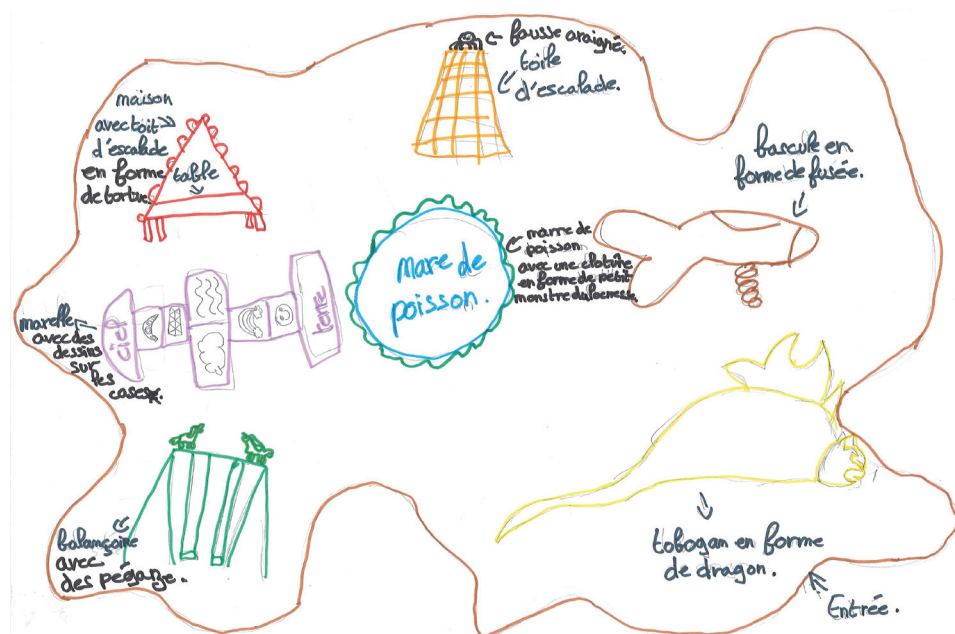 fausse araignée.
toile
d'escalade.
maison
avec toit
d'escalade
en forme
de tortue.
table
bascule en
forme de fusée.
mare de
poisson.
marre de
poisson
avec une cloture
en forme de petit
monstre du
marelle
avec des
dessins
sur
les
cases.
ciel
terre
balançoire
avec
des pégaze.
tobogan en forme
de dragon.
Entrée.